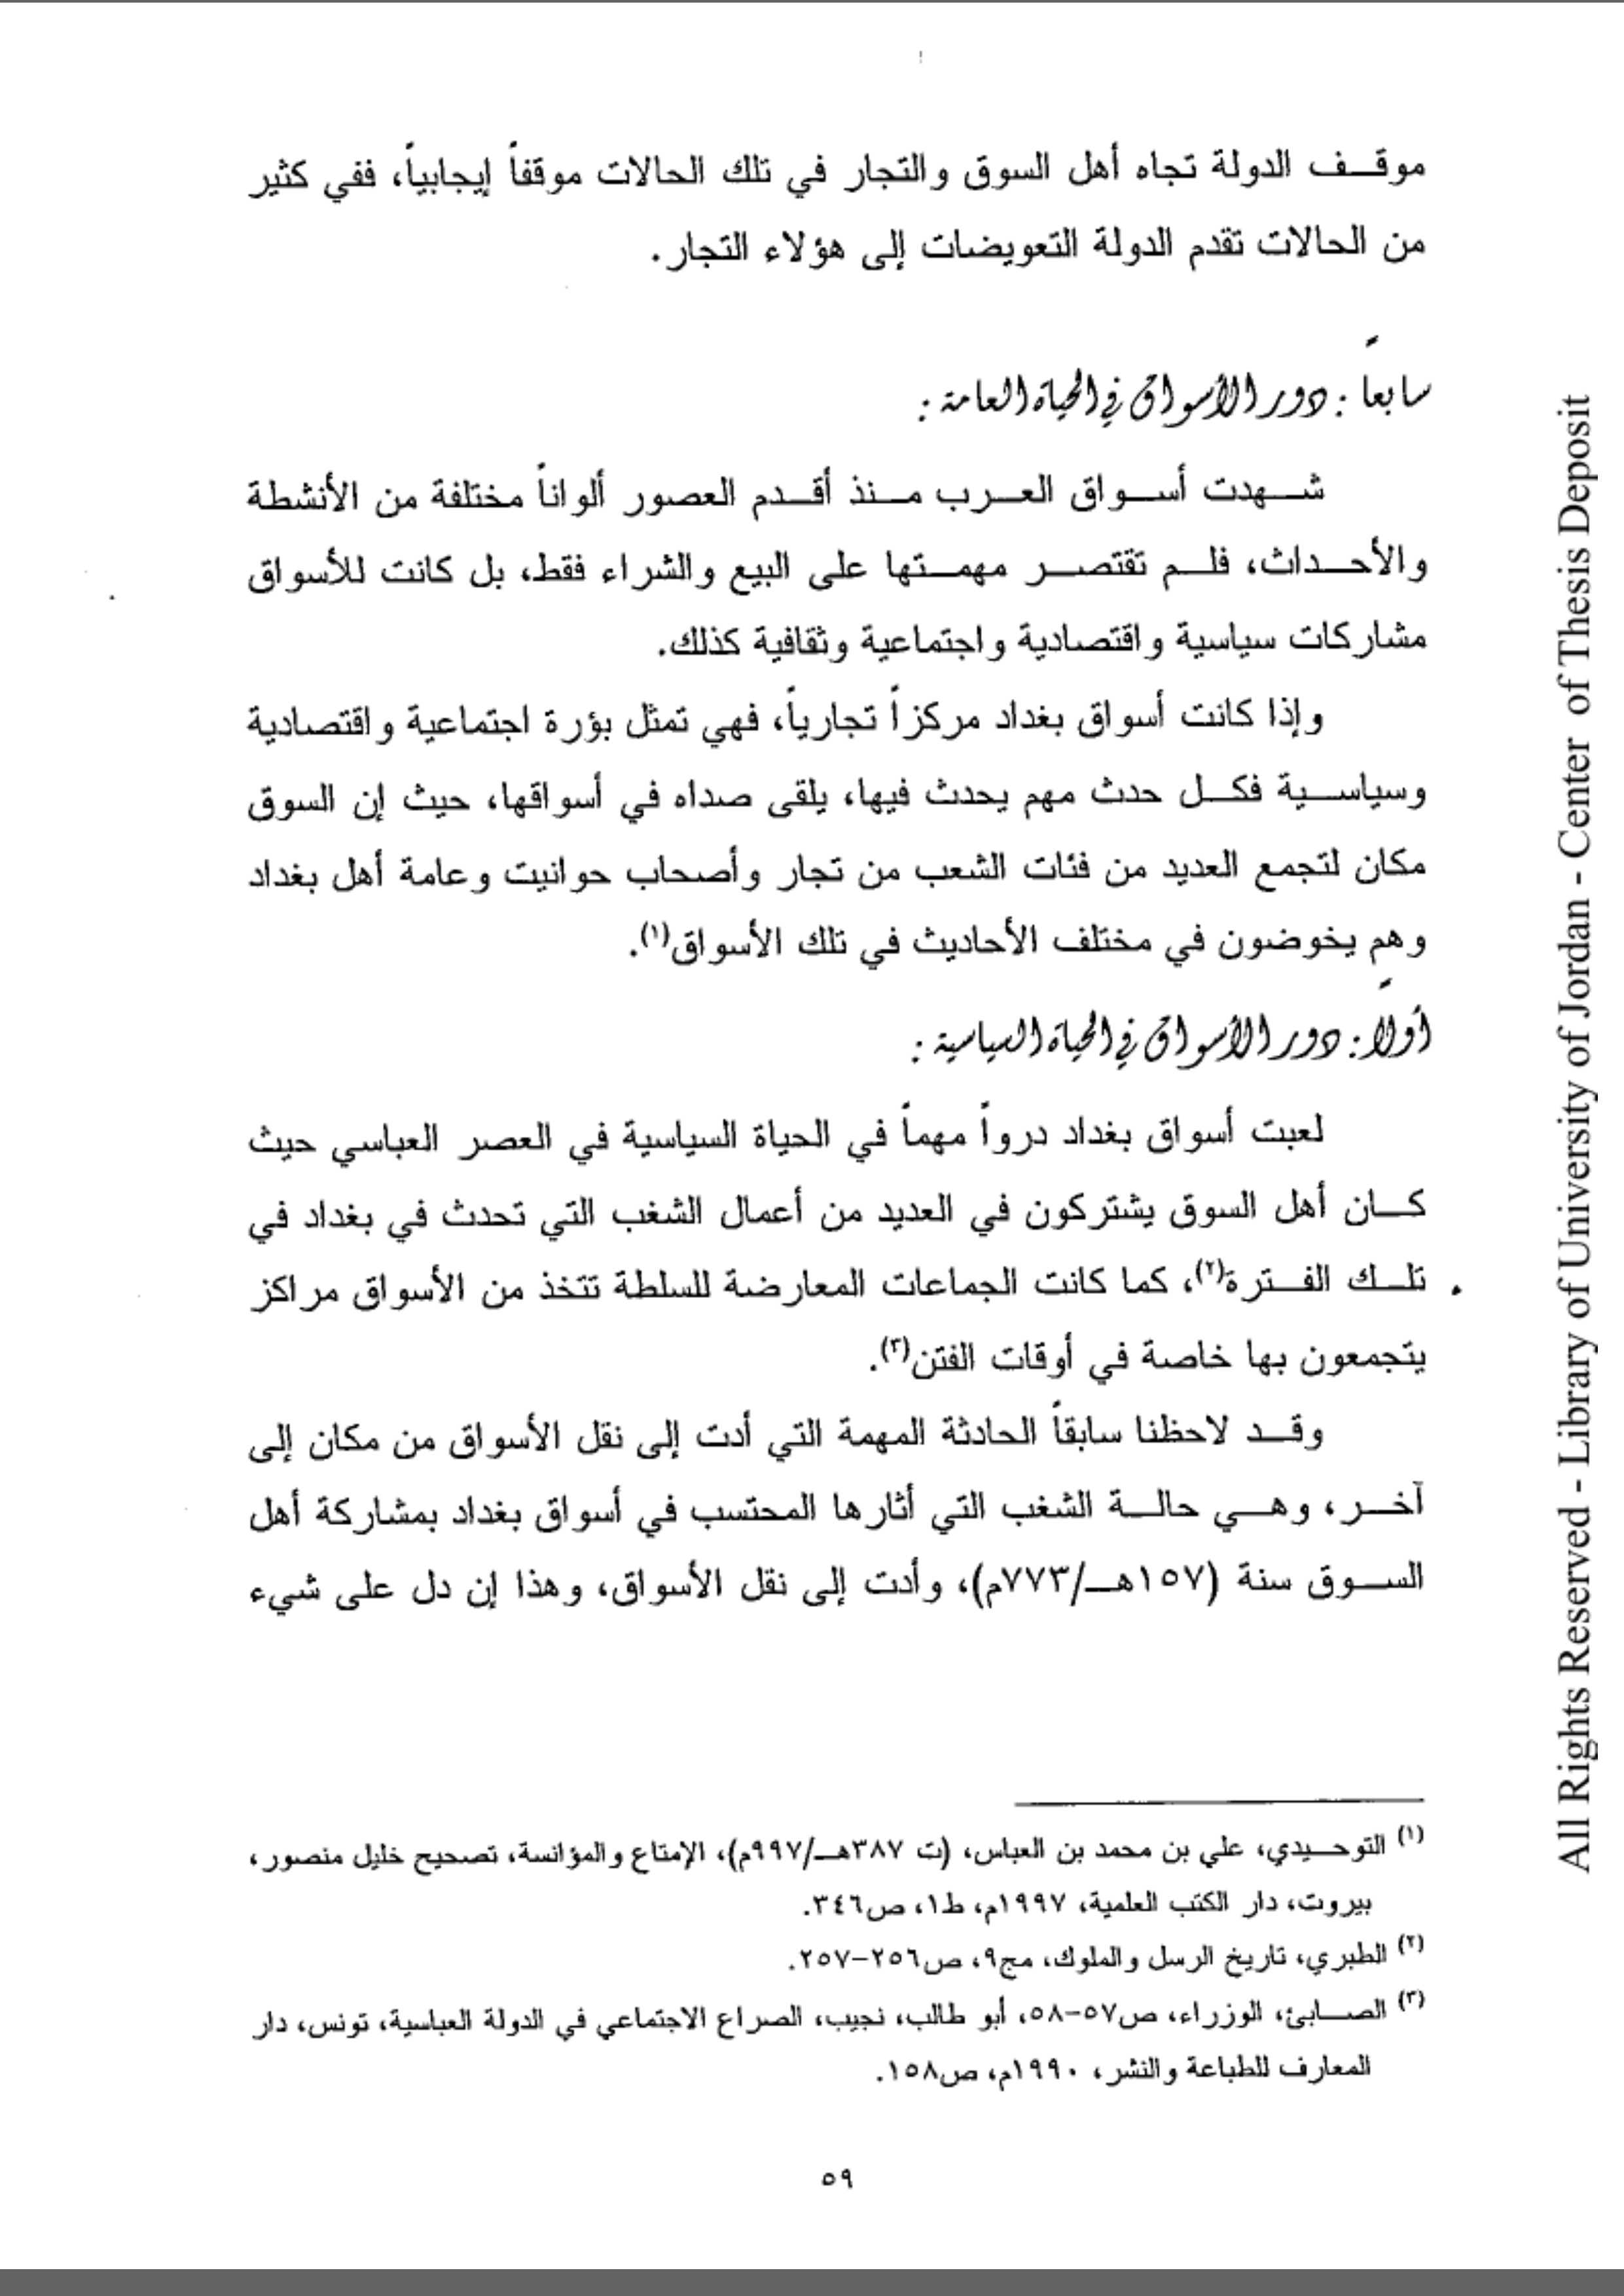 موقف الدولة تجاه أهل السوق والتجار في تلك الحالات موقفاً إيجابياً، ففي كثير
من الحالات تقدم الدولة التعويضات إلى هؤلاء التجار.
سابعاً : دور الأسواق في الحياة العامة :
شهدت أسواق العرب منذ أقدم العصور ألواناً مختلفة من الأنشطة
والأحداث، فلم تقتصر مهمتها على البيع والشراء فقط، بل كانت للأسواق
مشاركات سياسية واقتصادية واجتماعية وثقافية كذلك.
وإذا كانت أسواق بغداد مركزاً تجارياً، فهي تمثل بؤرة اجتماعية واقتصادية
وسياسية فكل حدث مهم يحدث فيها، يلقى صداه في أسواقها، حيث إن السوق
مكان لتجمع العديد من فئات الشعب من تجار وأصحاب حوانيت وعامة أهل بغداد
وهم يخوضون في مختلف الأحاديث في تلك الأسواق(١).
أولاً : دور الأسواق في الحياة السياسية :
لعبت أسواق بغداد درواً مهماً في الحياة السياسية في العصر العباسي حيث
كان أهل السوق يشتركون في العديد من أعمال الشغب التي تحدث في بغداد في
تلك الفترة(٢)، كما كانت الجماعات المعارضة للسلطة تتخذ من الأسواق مراكز
يتجمعون بها خاصة في أوقات الفتن(٣).
وقد لاحظنا سابقاً الحادثة المهمة التي أدت إلى نقل الأسواق من مكان إلى
آخر، وهي حالة الشغب التي أثارها المحتسب في أسواق بغداد بمشاركة أهل
السوق سنة (١٥٧هـ/٧٧٣م)، وأدت إلى نقل الأسواق، وهذا إن دل على شيء
(١) التوحيدي، علي بن محمد بن العباس، (ت ٣٨٧هـ/٩٩٧م)، الإمتاع والمؤانسة، تصحيح خليل منصور،
بيروت، دار الكتب العلمية، ١٩٩٧م، ط١، ص٣٤٦.
(٢) الطبري، تاريخ الرسل والملوك، مج٩، ص٢٥٦-٢٥٧.
(٣) الصابئ، الوزراء، ص٥٧-٥٨، أبو طالب، نجيب، الصراع الاجتماعي في الدولة العباسية، تونس، دار
المعارف للطباعة والنشر، ١٩٩٠م، ص١٥٨.
٥٩
All Rights Reserved - Library of University of Jordan - Center of Thesis Deposit